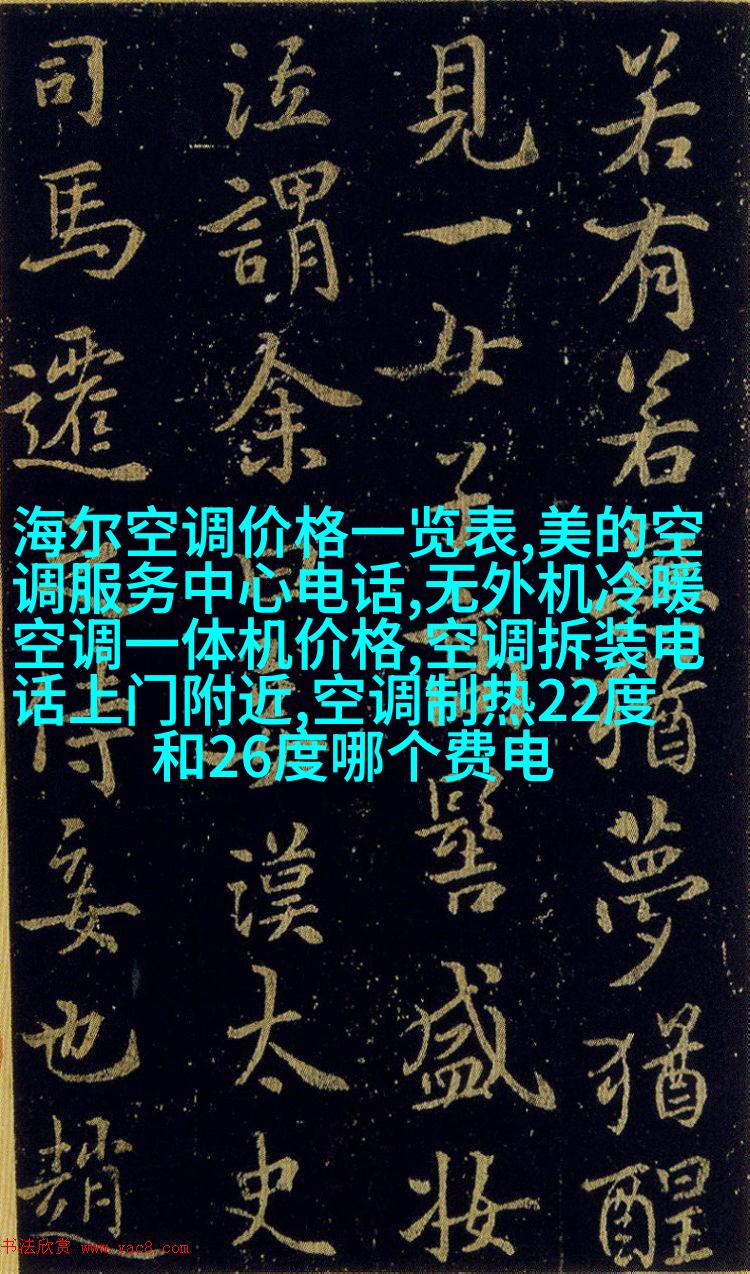 若有若猶夢猶醒
見一女子盛妝
泣謂余曰漢太史
司馬遷之侍妾也趙
海尔空调价格一览表,美的空
调服务中心电话,无外机冷暖
空调一体机价格,空调拆装电
话上门附近,空调制热22度
和26度哪个费电
书法欣赏 www.yac8.com